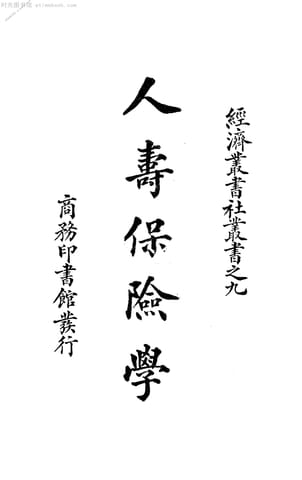 經濟叢書社叢書之九
人壽保險學
商務印書館發行